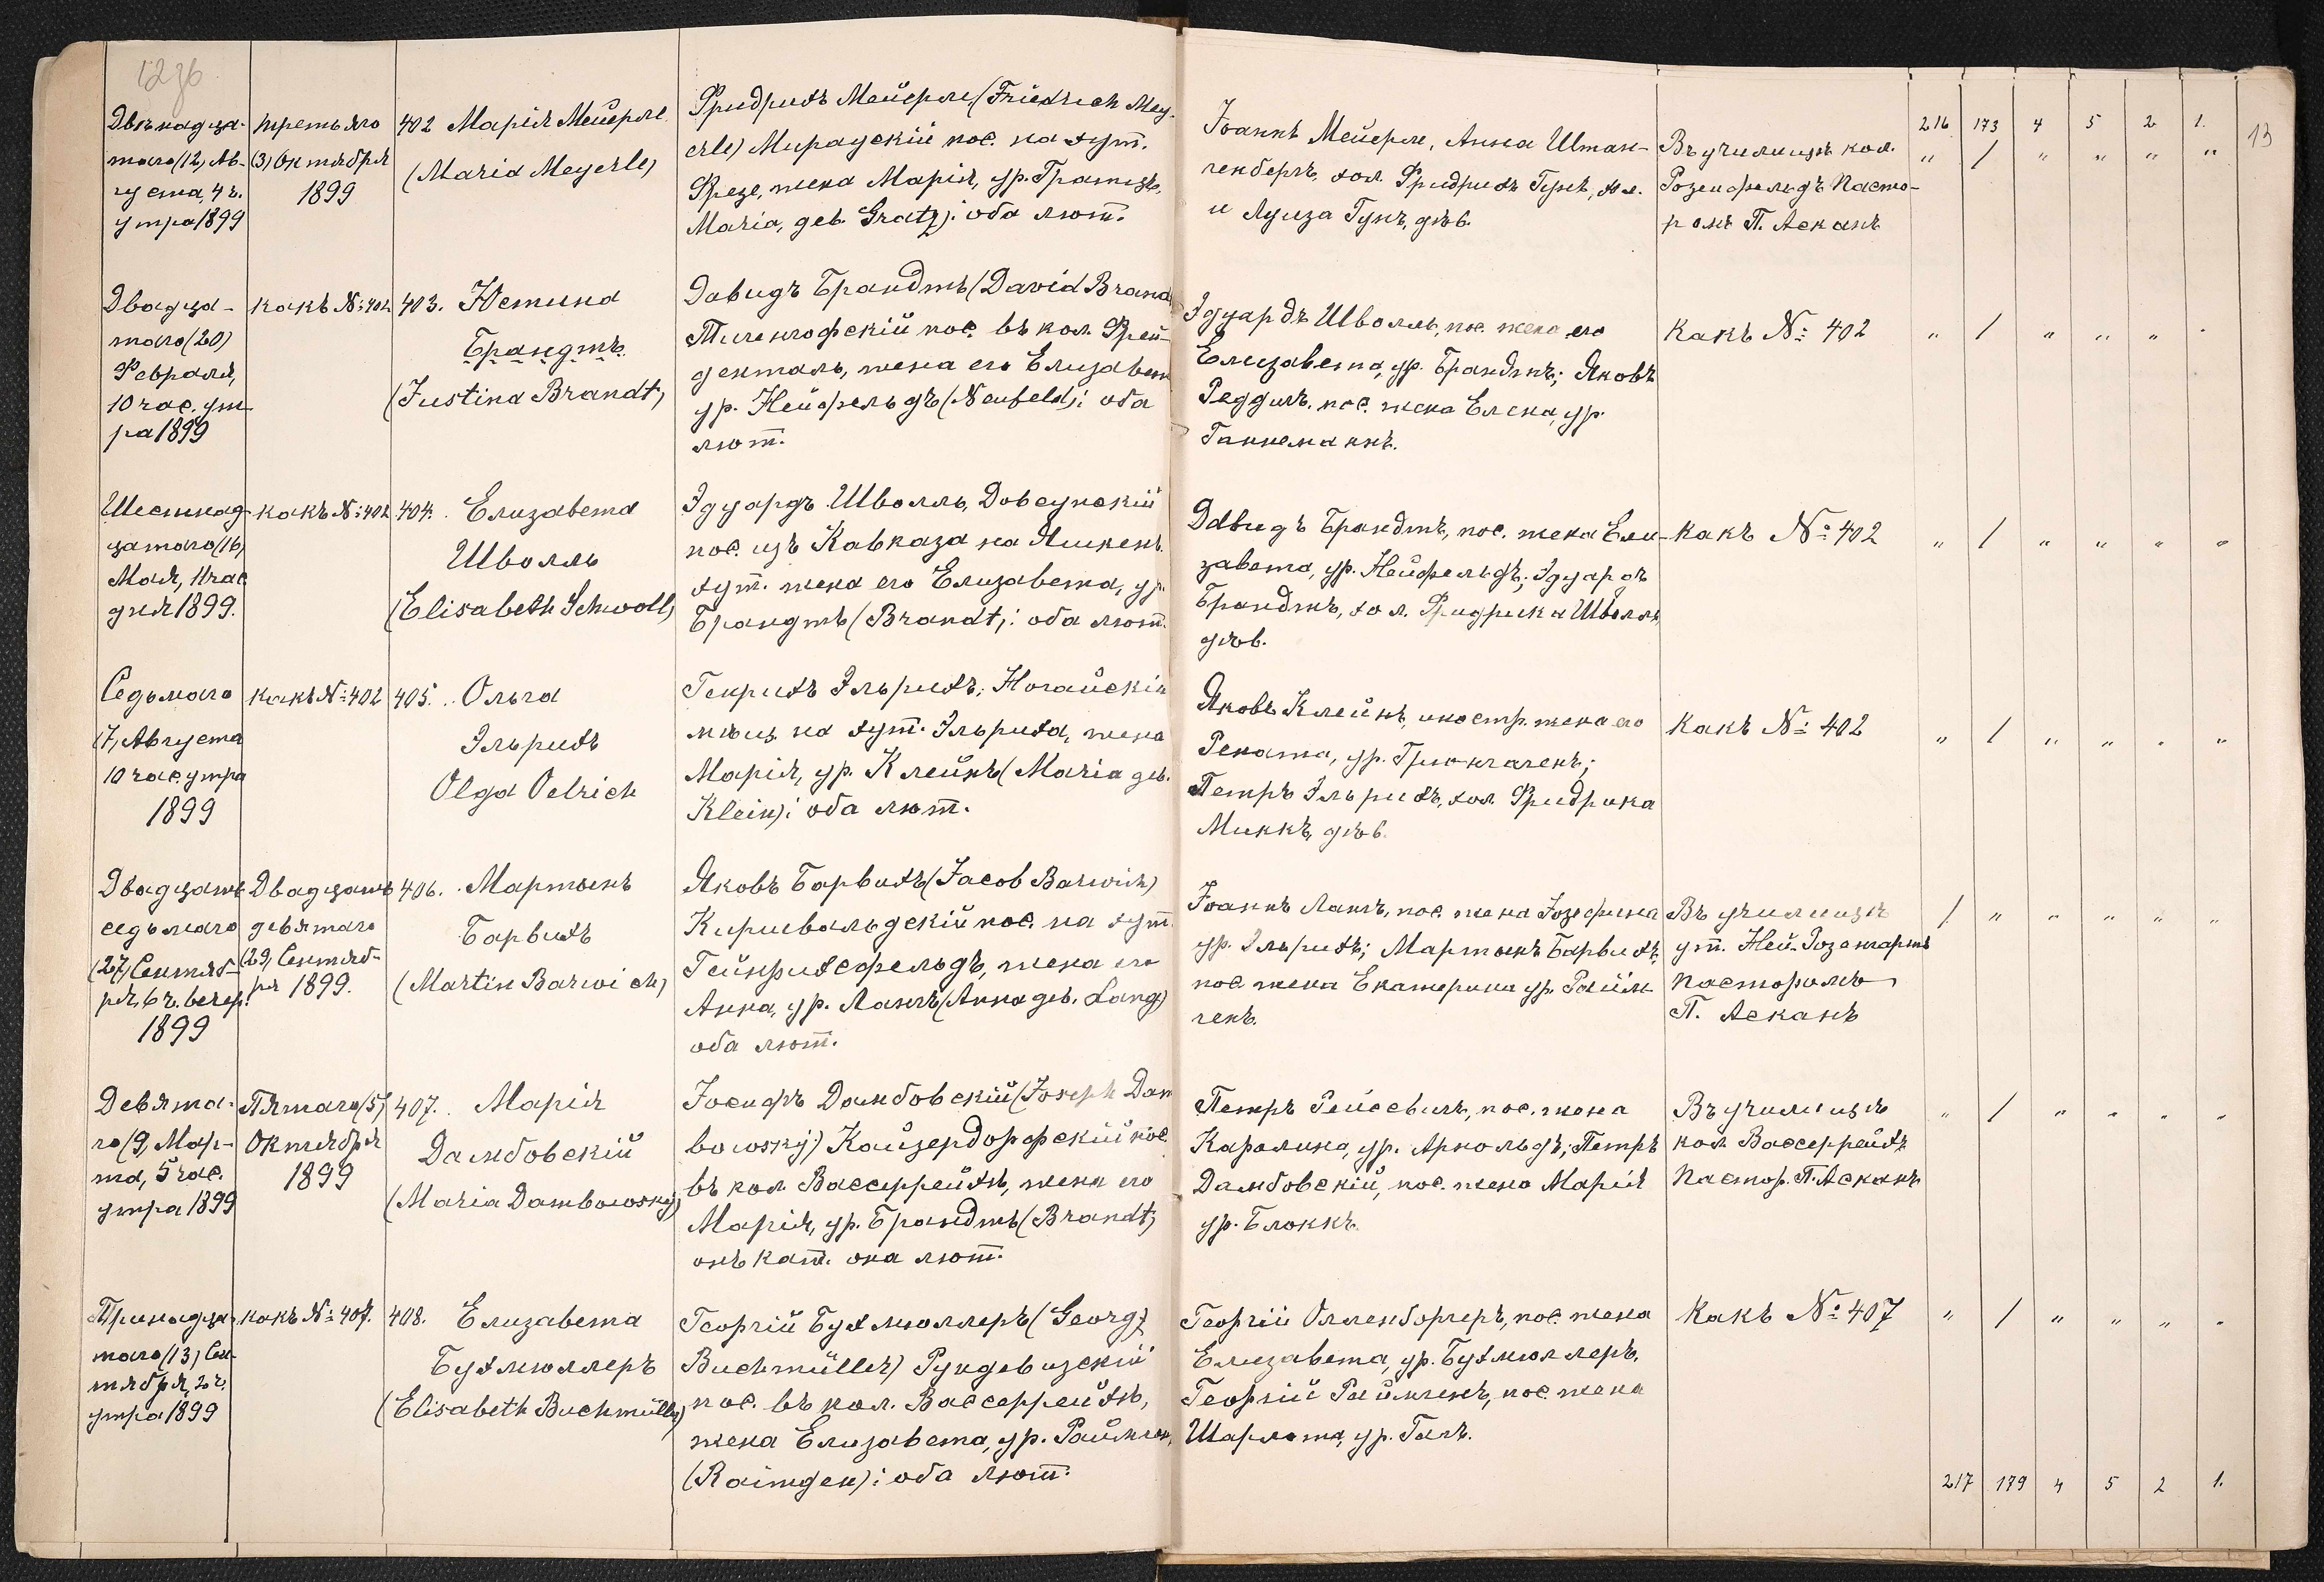 12 об
13
216 173 4 5 2 1.
Двѣнадца-
таго (12) Ав-
густа, 4 ч.
утра 1899
третьяго
(3) Октября
1899
402 Марія Мейерле
(Maria Meyerle)
Фридрихъ Мейерле (Friedrich Mey-
erle) Мираускій пос. на хут.
Фрезе, жена Марія, ур. Гратцъ,
Maria, geb. Gratz): оба лют.
Іоаннъ Мейерле, Анна Штан-
генбергъ, хол. Фридрихъ Гунъ, хол.
и Луиза Гунъ, дѣв.
Въ училищѣ кол.
Розенфельдъ Пасто-
ромъ П. Асканъ
" 1 " " " "
Двадца-
таго (20)
Февраля,
10 час. ут-
ра 1899
какъ № 402
403. Юстина
Брандтъ
(Justina Brandt)
Давидъ Брандтъ (David Brand
Тигенгофскій пос. въ кол. Фрей-
денталь, жена его Елизавет
ур. Нейфельдъ (Neufeld): оба
лют.
Эдуардъ Шволль, пос. жена его
Елизавета, ур. Брандтъ; Яковъ
Реддигъ, пос. жена Елена, ур.
Ганнеманнъ.
Какъ № 402
" 1 " " " "
Шестнад-
цатаго (16)
Мая, 11 час
дня 1899.
какъ № 402
404. Елизавета
Шволль
(Elisabeth Schwoll)
Эдуардъ Шволль, Довсунскій
пос. изъ Кавказа на Янцен.
хут. жена его Елизавета, ур.
Брандтъ (Brandt): оба лют.
Давидъ Брандтъ, пос. жена Ели-
завета, ур. Нейфельдъ; Эдуардъ
Брандтъ, хол. Фридрика Шволль,
дѣв.
какъ № 402
" 1 " " " "
Седьмаго
(7) Августа
10 час. утра
1899
какъ № 402
405. Ольга
Эльрихъ
Olga Oelrich
Генрихъ Эльрихъ, Ногайскій
мѣщ. на хут. Эльриха, жена
Марія, ур. Клейнъ (Maria geb.
Klein): оба лют.
Яковъ Клейнъ, иностр. жена его
Рената, ур.
Петръ Эльрихъ, хол. Фридрика
Миккъ, дѣв.
Какъ № 402
" 1 " " " "
Двадцать
седьмаго
(27) Сентяб-
ря, 6 ч. вечер.
1899
Двадцать
девятаго
(29) Сентяб-
ря 1899.
406. Мартынъ
Барвихъ
(Martin Barwich)
Яковъ Барвихъ (Jacob Barwich)
Киршвальдскій пос. на хут.
Гейнрихсфельдъ, жена его
Анна, ур. Лангъ (Anna geb. Lang)
оба лют.
Іоаннъ Лангъ, пос. жена Іозефина
ур. Эльрихъ; Мартынъ Барвихъ,
пос. жена Екатерина ур. Райм-
генъ.
Въ училищѣ
ут. Ней-Розенгартъ
Пасторомъ
П. Асканъ
1 " " " " "
Девята-
го (9) Мар-
та, 5 час.
утра 1899
Пятаго (5)
Октября
1899
407. Марія
Дамбовскій
(Maria Dambowsky)
Іосифъ Дамбовскій (Joseph Dam
bowsky) Кайзердорфскій пос.
въ кол. Вассеррейхъ, жена его
Марія, ур. Брандтъ (Brandt)
онъ кат. она лют.
Петръ Рейсевичъ, пос. жена
Каролина, ур. Арнольдъ; Петръ
Дамбовскій, пос. жена Марія
ур. Блоккъ.
Въ училищѣ
кол. Вассеррейхъ
Пастор. П. Асканъ
" 1 " " " "
Тринадца-
таго (13) Сен-
тября, 2 ч.
утра 1899
какъ № 407.
408. Елизавета
Бухмюллеръ
(Elisabeth Buchmüller)
Георгій Бухмюллеръ (Georg
Buchmüller) Рундевизскій
пос. въ кол. Вассеррейхъ,
жена Елизавета, ур. Раймген
(Raimgen): оба лют.
Георгій Олленбергеръ, пос. жена
Елизавета, ур. Бухмюллеръ,
Георгій Раймгенъ, пос. жена
Шарлота, ур. Галь.
Какъ № 407
" 1 " " " "
217 179 4 5 2 1.